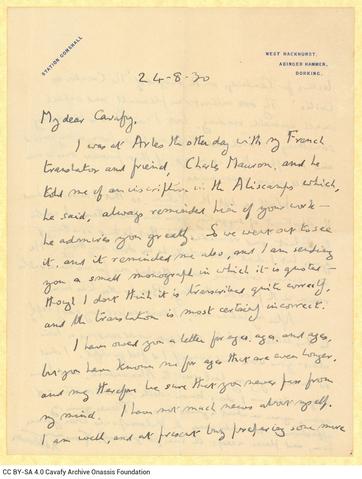 STATION GOMSHALL
WEST HACKHURST,
ABINGER HAMMER,
DORKING.
24-8-30
My dear Cavafy,
I was at Arles the other day with my French
translator and friend, Charles Mauron, and he
told me of an inscription in the Aliscamps which,
he said, always reminded him of your work —
he admires you greatly. So we went out to see
it, and it reminded me also, and I am sending
you a small monograph in which it is quoted —
though I don't think it is transcribed quite correctly,
and the translation is most certainly incorrect.
I have owed you a letter for ages, ages, and ages,
but you have known me for ages that are even longer,
and may therefore be sure that you never pass from
my mind. I have not much news about myself.
I am well, and at present busy preparing some more
CC BY-SA 4.0 Cavafy Archive Onassis Foundation